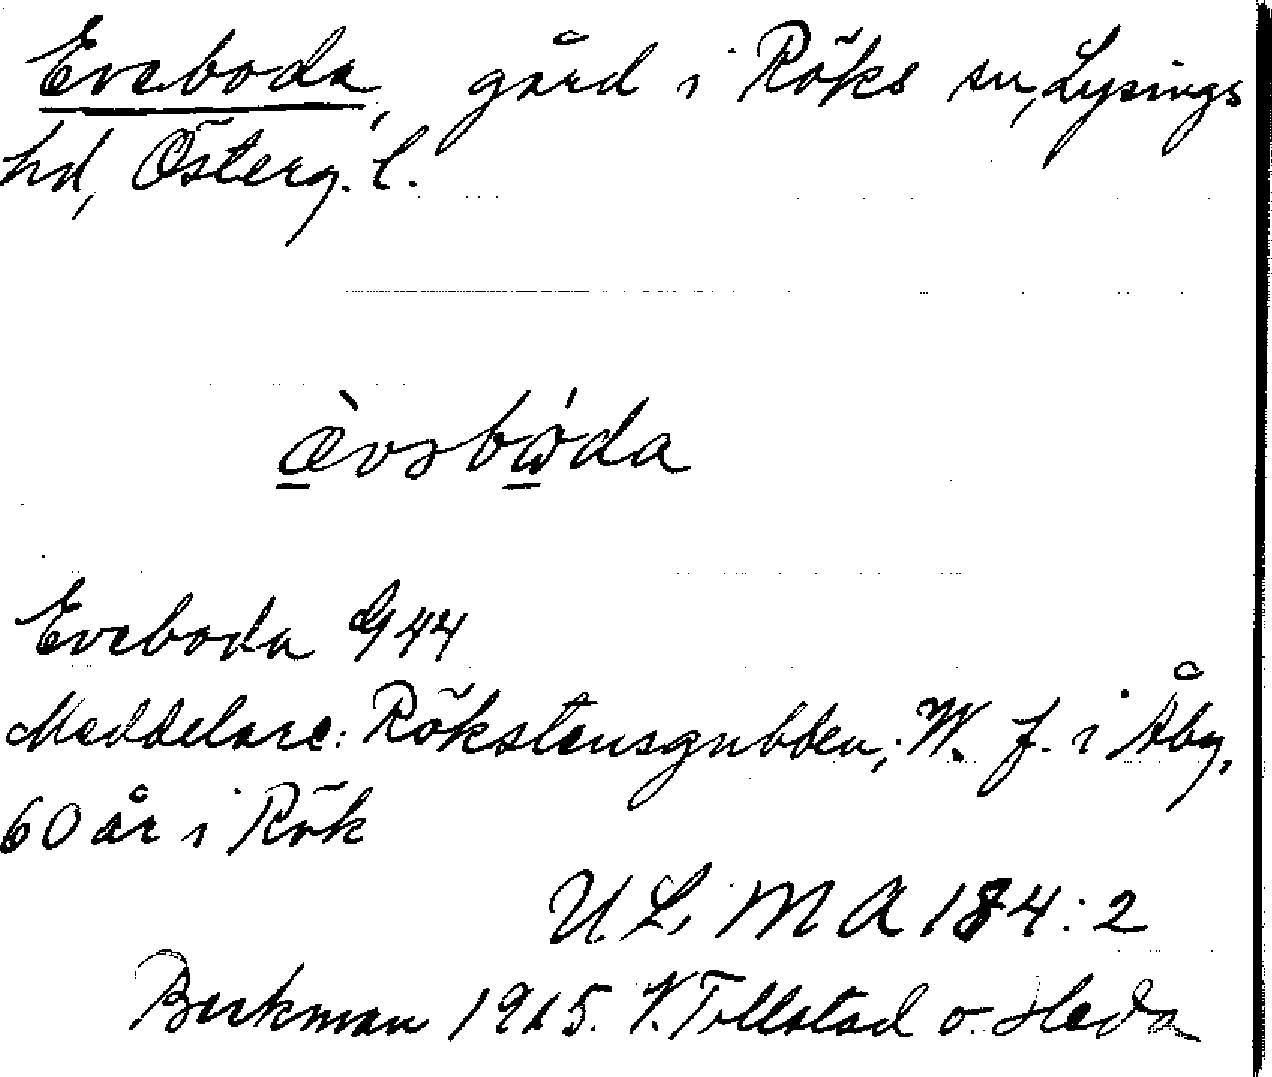 Evsboda, gård i Röks sn, Lysings
hd, Österg. l.
œ̀vsbǿda
Evsboda G 44
Meddelare: Rökstensgubben, W. f. i Åby,
60 år i Rök
U. L. M A 184:2
Beckman 1915. V. Tollstad o. Heda